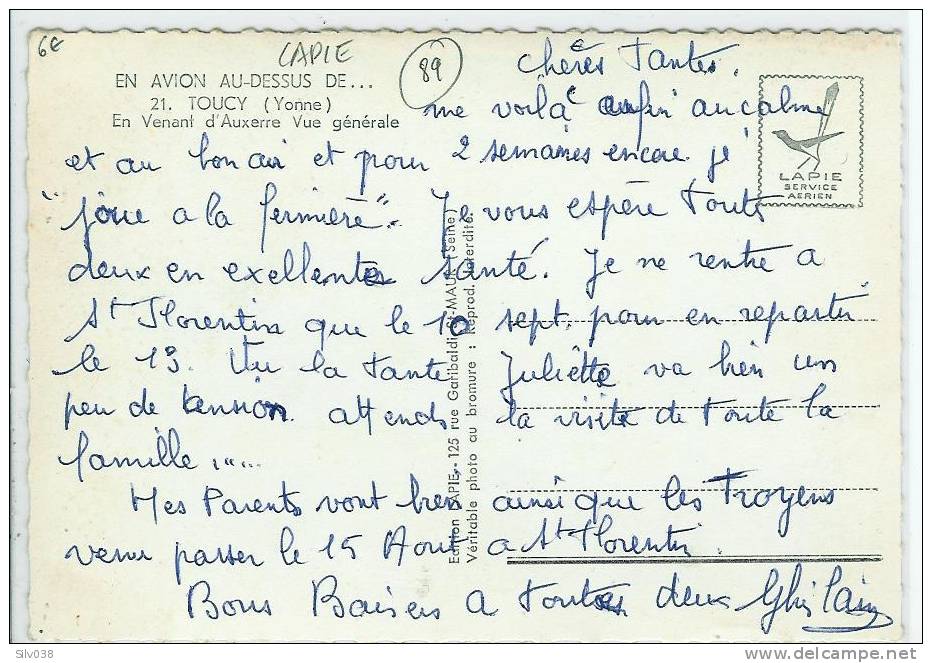 6€
LAPIE
89
EN AVION AU-DESSUS DE...
21. TOUCY (Yonne)
En Venant d'Auxerre Vue générale
LAPIE
SERVICE
AERIEN
chères Tantes.
me voilà enfin au calme
et au bon air et pour 2 semaines encore je
"joue a la fermière". Je vous espère toute
deux en exellentes santé. Je ne rentre a
St Florentin que le 10 sept. pour en repartir
le 13. Vu la tante Juliette va bien un
peu de tension. attends la visite de toute la
famille.....
Mes Parents vont bien ainsi que les Troyens
venu passer le 15 Aout a St Florentin.
Bons Baisers a toutes deux Ghislain
Edition LAPIE - 125 rue Garibaldi St-MAUR (Seine)
Véritable photo au bromure : Reprod. interdite.
Slv038
delcampe.net